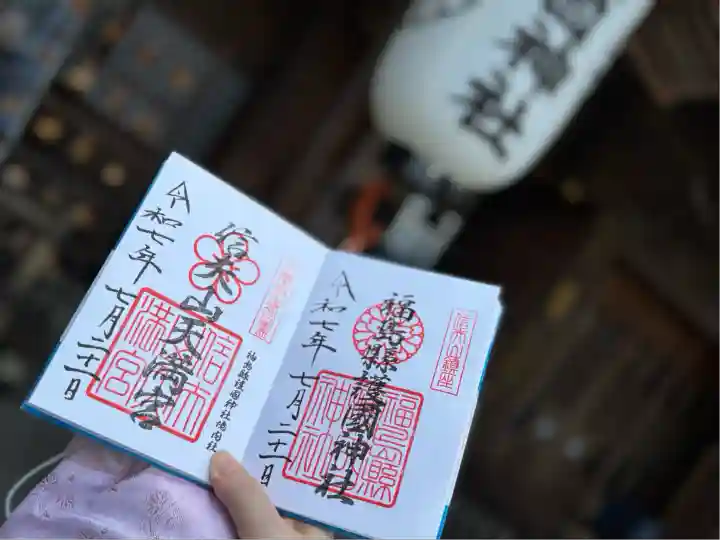 福島縣護國神社
令和七年 七月二十一日
信夫山鎮座
信夫山天満宮
令和七年 七月二十一日
福島縣護國神社境内社
神社